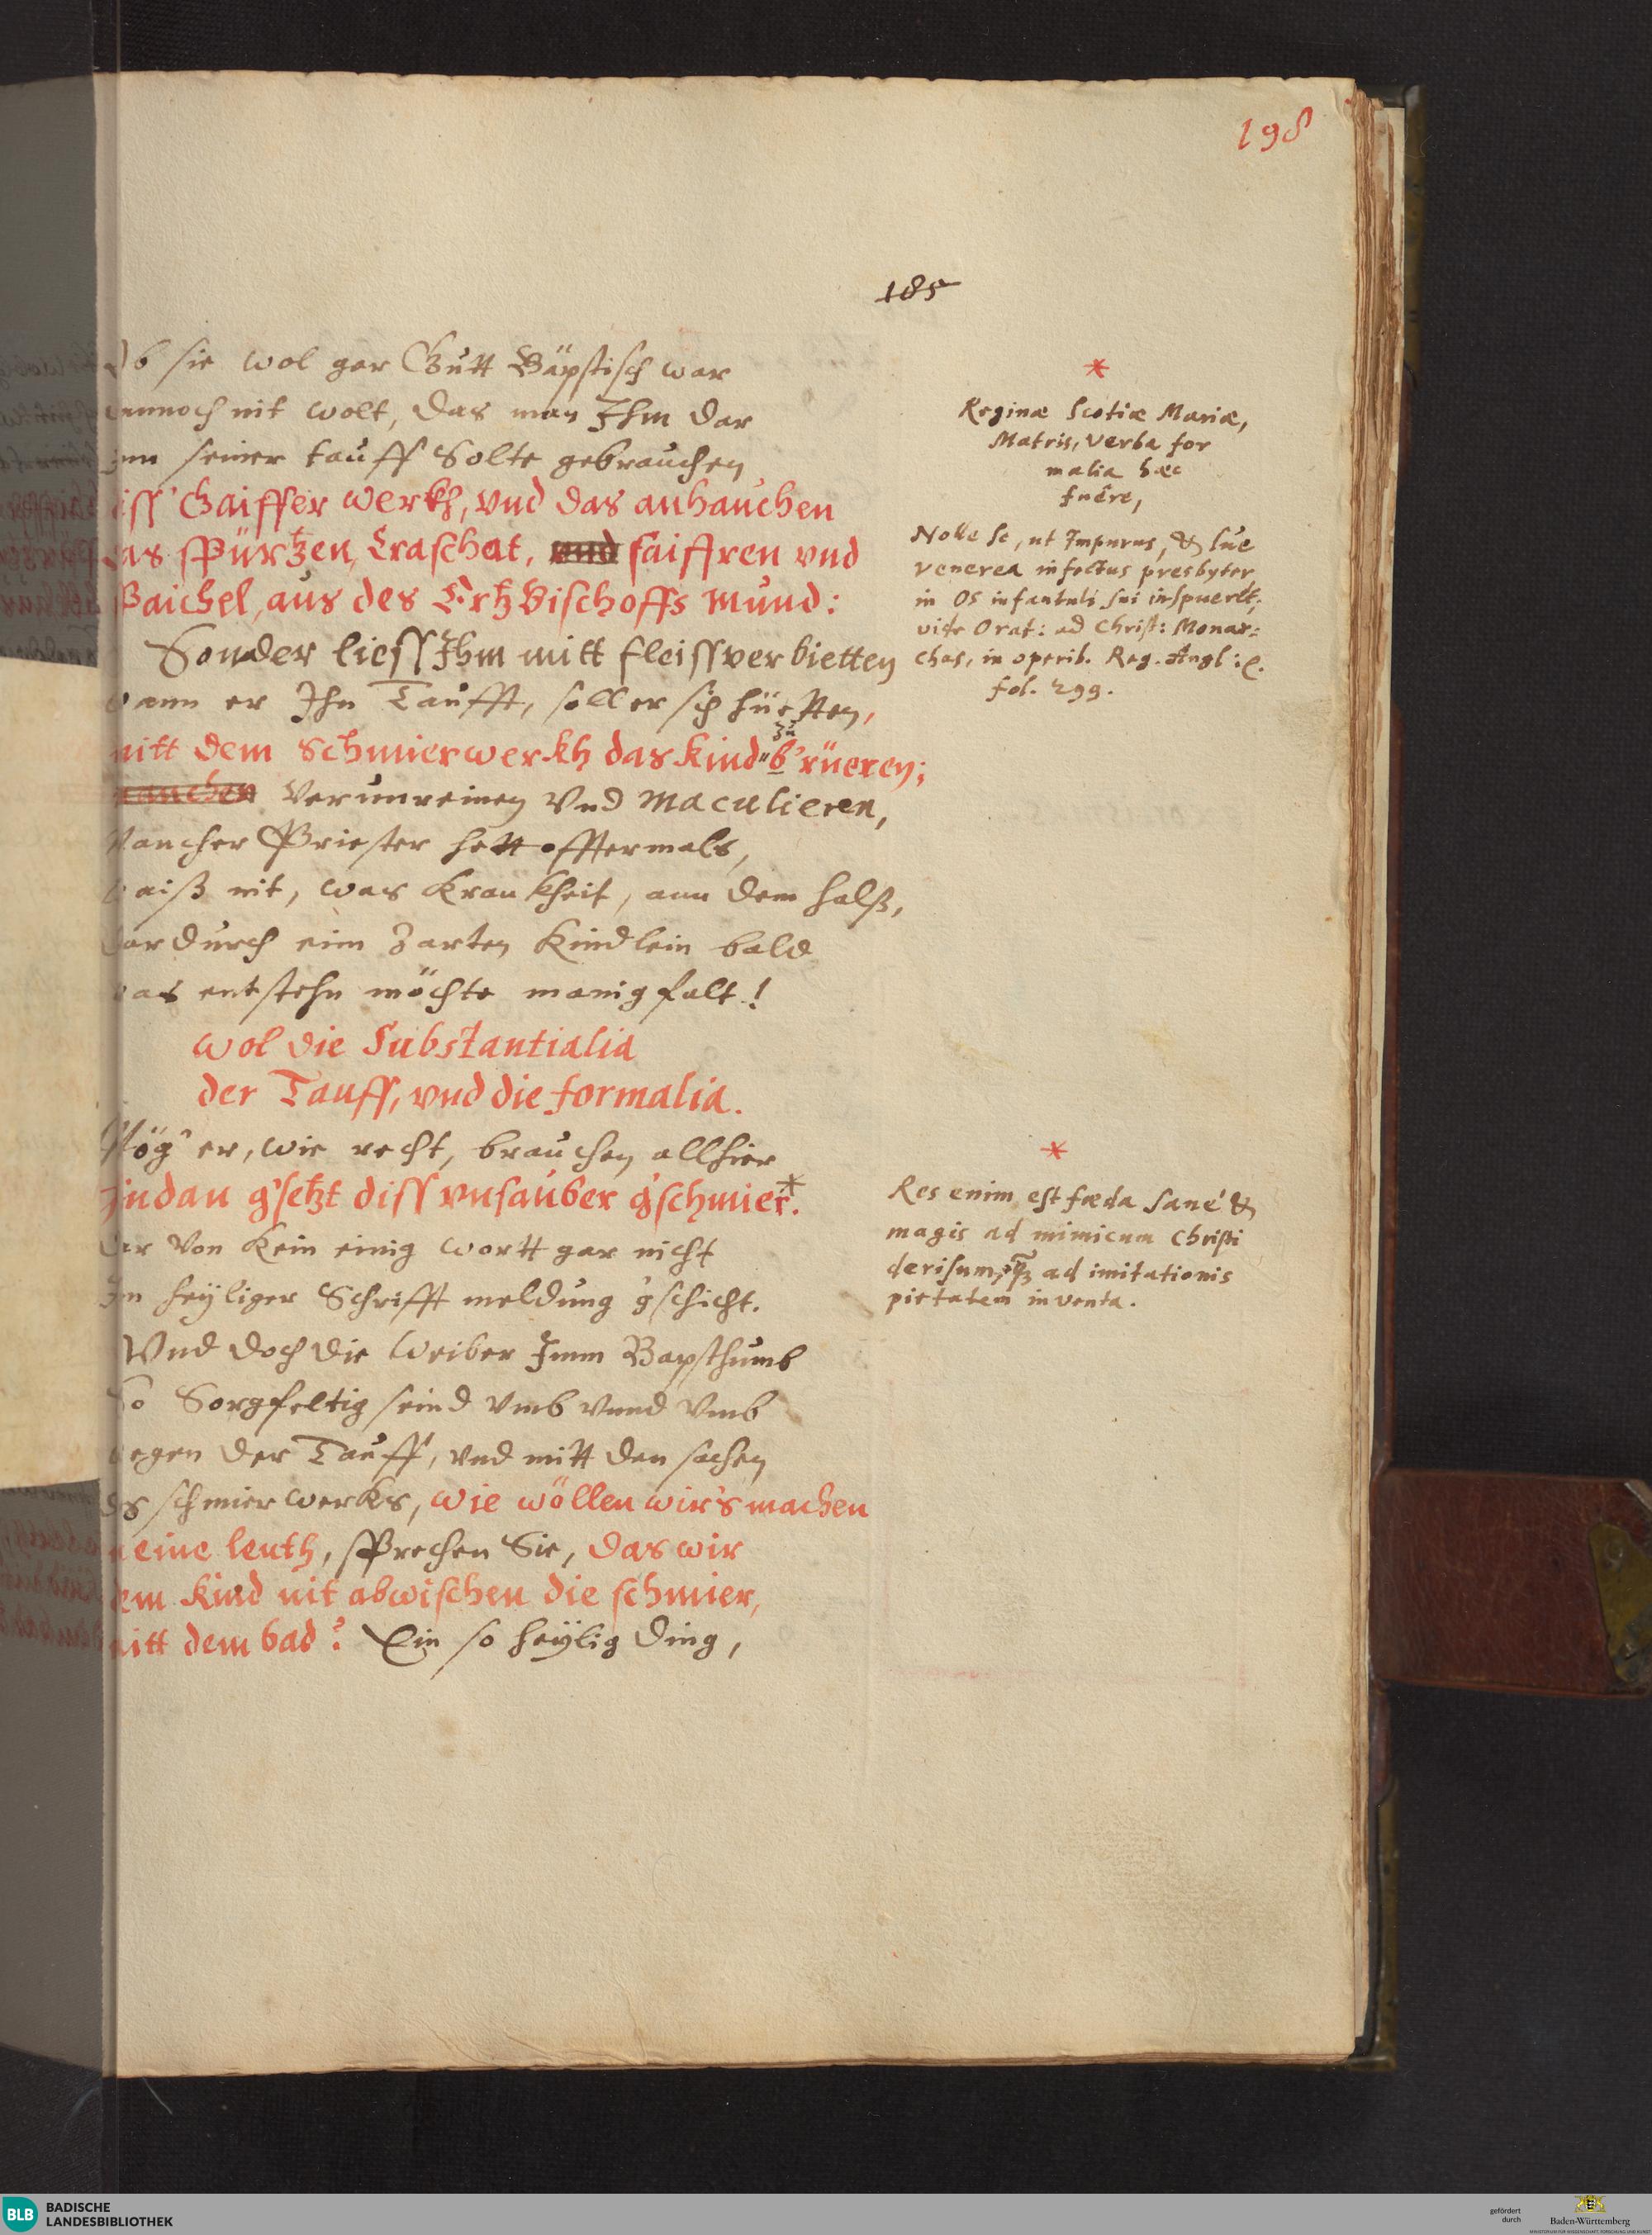 198
185
Ob sie wol gar Gutt Bäpstisch war
dennoch nit wolt, das man Ihm dar
Inn seiner tauff solte gebrauchen
diss Gaiffer werkh, vnd das anhauchen
das spürtzen, Craschat, vnd saiffren vnd
Baichel, aus des Ertzbischoffs mund:
Sonder liess Ihm mitt fleiss verbietten
wann er Ihn Taufft, soll er sich hüetten,
mitt dem schmierwerkh das kind zu b'rüeren;
Verunreinen vnd maculieren,
Mancher Priester hett offtermals,
waiß nit, was krankheit, ann dem halß,
dardurch eim zarten kindlein bald
was entstehn möchte manigfalt!
wol die Substantialia
der Tauff, vnd die formalia.
Mög' er, wie recht, brauchen allhier
Hindan g'setzt diss vnsauber g'schmier.*
dar von kein einig wortt gar nicht
In heyliger Schrifft meldung g'schicht.
Vnd doch die weiber Imm Bapsthumb
So Sorgfeltig seind vmb vnnd vmb
wegen der Tauff, vnd mitt den sachen
des schmierwerks, wie wöllen wir's machen
meine leuth, sprechen Sie, das wir
dem kind nit abwischen die schmier,
mitt dem bad? Ein so heylig ding,
*
Reginæ Scotiæ Mariæ,
Matris, verba for
malia hæc
fuêre,
Nolle se, ut Impurus, & lue
venerea infectus presbyter
in os infantuli sui inspueret;
vide Orat: ad Christ: Monar:
chas, in operib. Reg. Angl:
fol. 299.
*
Res enim est fœda sané &
magis ad mimicum Christi
derisum, ꝙ ad imitationis
pietatem inventa.
BLB BADISCHE
LANDESBIBLIOTHEK
gefördert
durch
Baden-Württemberg